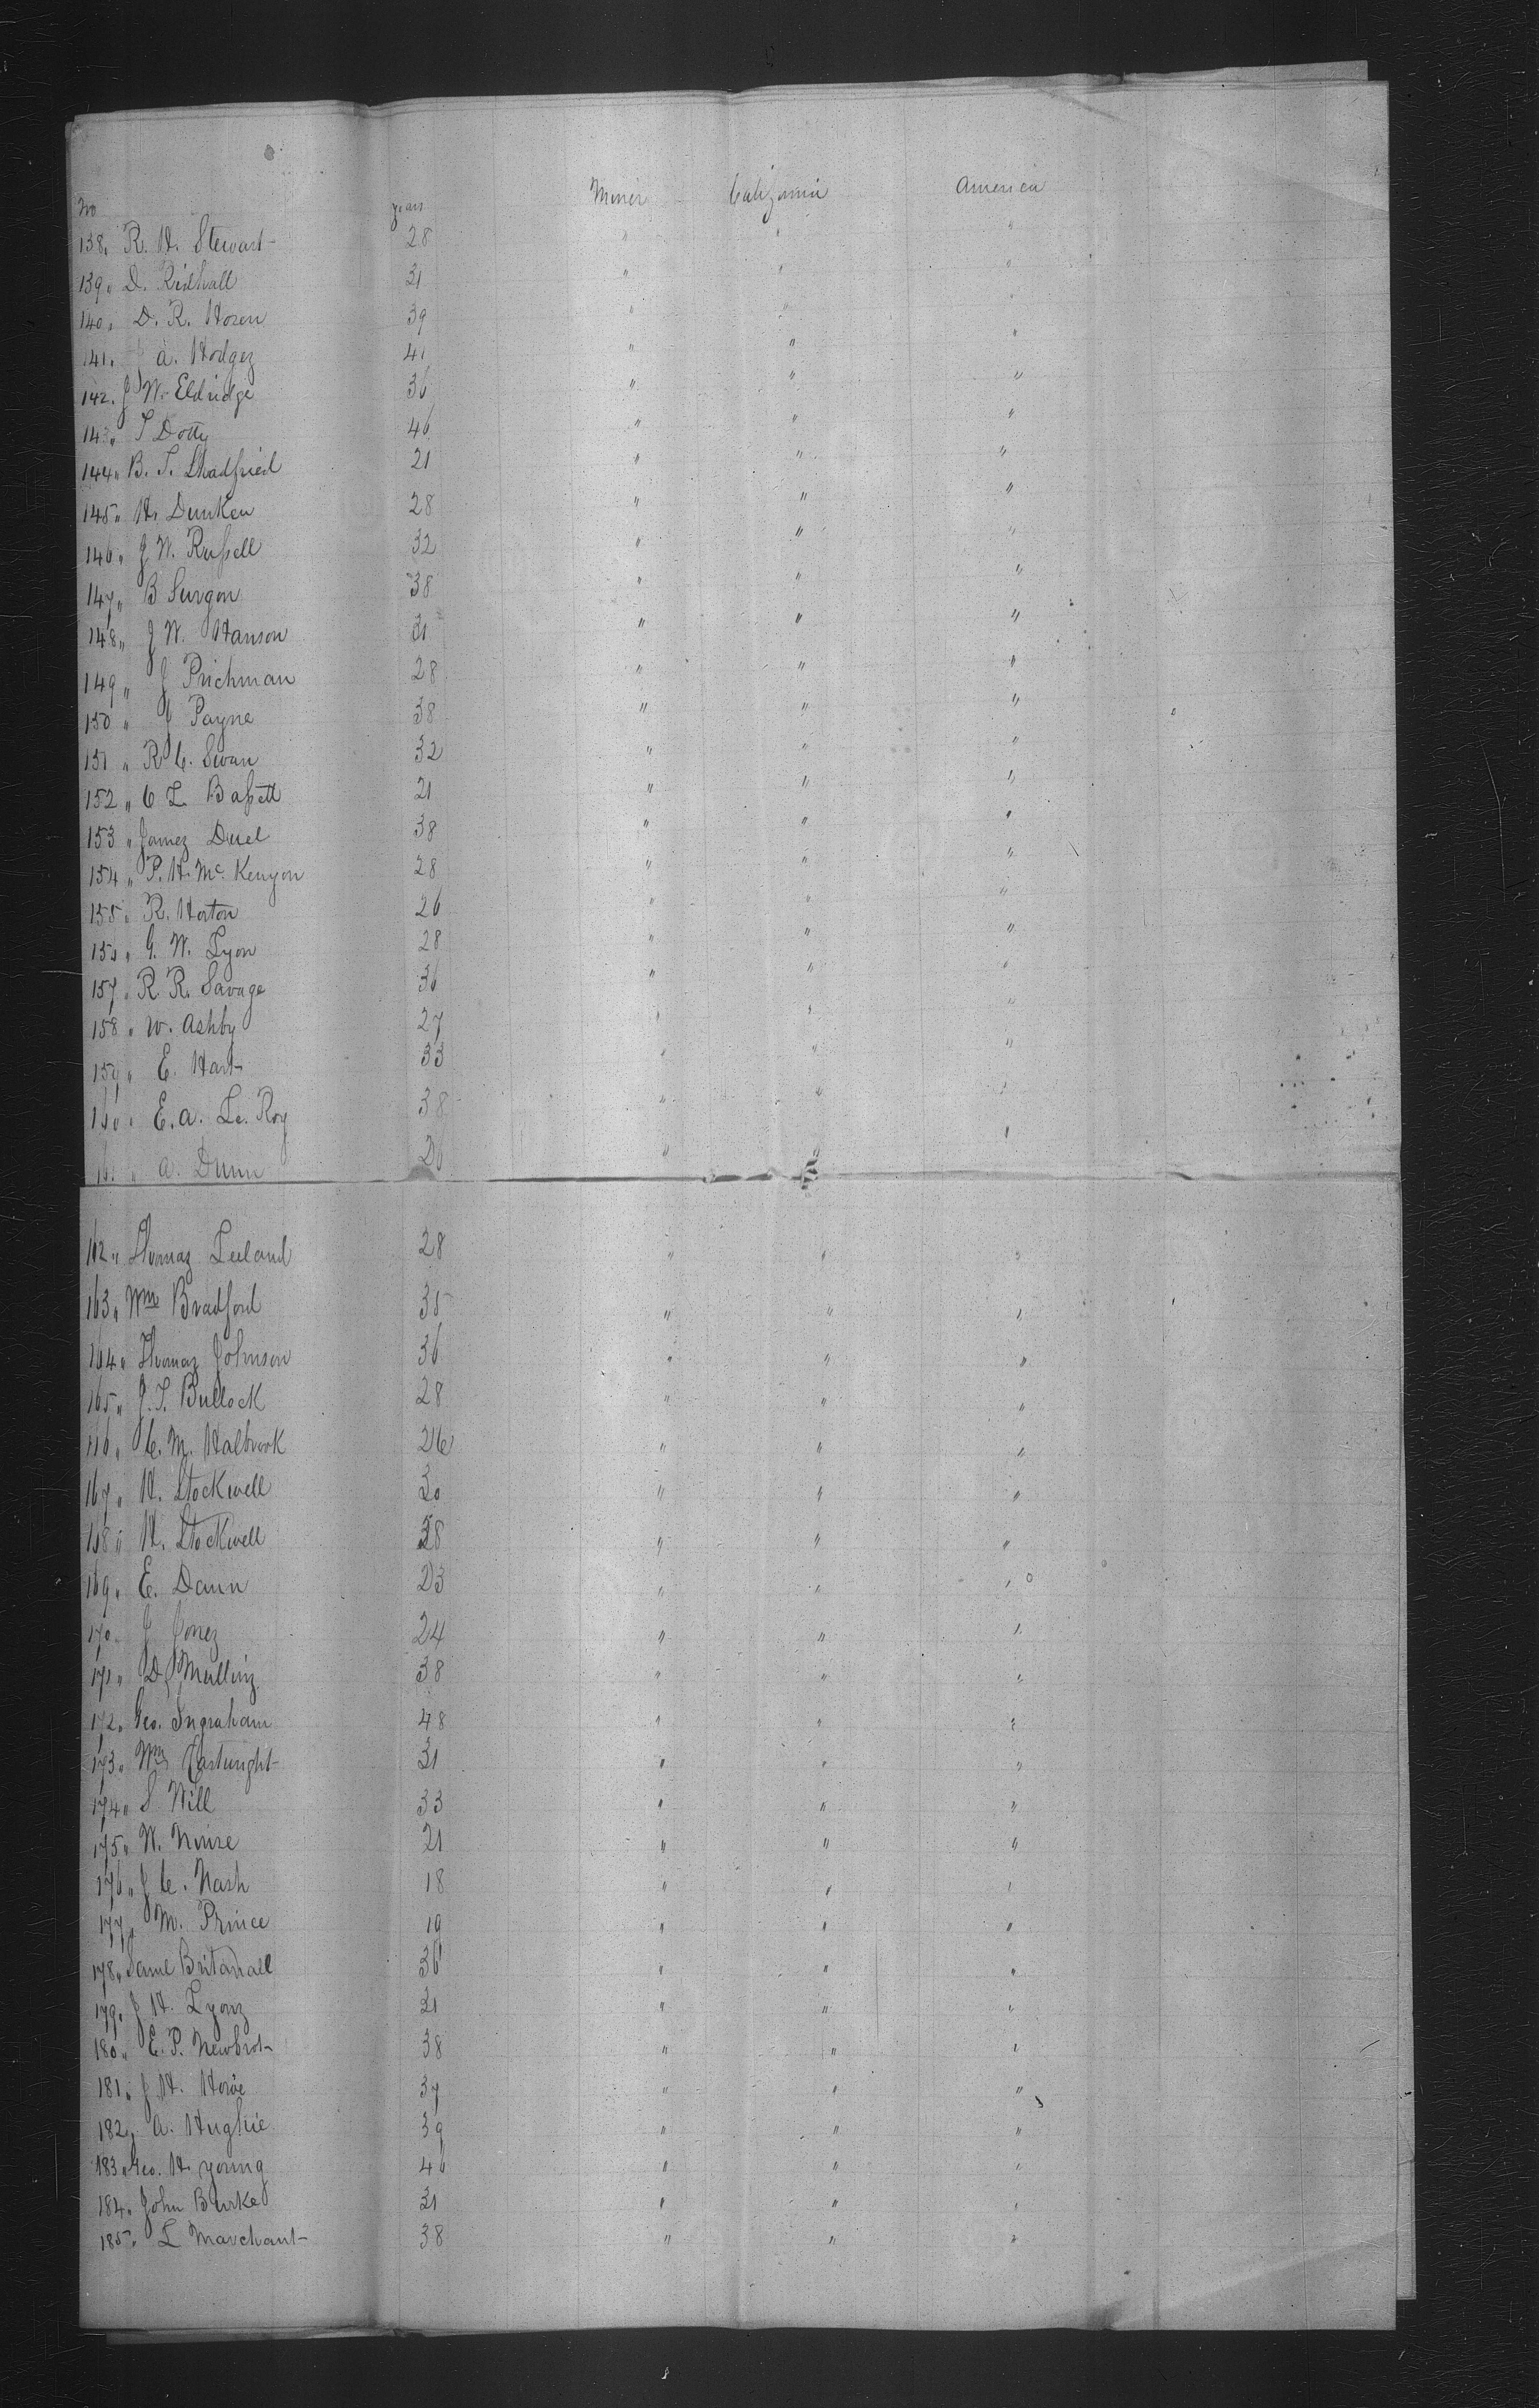 No years Miner California America
138 „ R. H. Stewart 28 „ „ „
139 „ D. Ridhall 31 „ „ „
140 „ D. R. Horen 39 „ „ „
141 „ J A. Hodgez 41 „ „ „
142 „ J W. Eldridge 36 „ „ „
143 „ T Dotty 46 „ „ „
144 „ B. T. Shadfried 21 „ „ „
145 „ H. Dunken 28 „ „ „
146 „ J W. Russell 32 „ „ „
147 „ B Surgon 38 „ „ „
148 „ J W. Hanson 31 „ „ „
149 „ J Prichman 28 „ „ „
150 „ J Payne 38 „ „ „
151 „ R C. Swan 32 „ „ „
152 „ C L. Bassett 21 „ „ „
153 „ Jamez Duel 38 „ „ „
154 „ P. H. Mc Kenyon 28 „ „ „
155 „ R. Horton 26 „ „ „
156 „ G. W. Lyon 28 „ „ „
157 „ R. R. Savage 36 „ „ „
158 „ W. Ashby 27 „ „ „
159 „ E. Hart 33 „ „ „
160 „ E. A. Le. Roy 38 „ „ „
161 „ A. Dunn 26 „ „ „
162 „ Thomaz Leeland 28 „ „ „
163 „ Wm Bradford 35 „ „ „
164 „ Thomaz Johnson 36 „ „ „
165 „ J. T. Bullock 28 „ „ „
166 „ C. M. Halbrook 26 „ „ „
167 „ H. Stockwell 30 „ „ „
168 „ H. Stockwell 38 „ „ „
169 „ E. Dann 23 „ „ „
170 „ J Jonez 24 „ „ „
171 „ D Mullinz 38 „ „ „
172 „ Geo. Ingraham 48 „ „ „
173 „ Wm Cartwright 31 „ „ „
174 „ S Will 33 „ „ „
175 „ W. Nourse 21 „ „ „
176 „ J C. Nash 18 „ „ „
177 „ M. Prince 19 „ „ „
178 „ Saml Britanall 36 „ „ „
179 „ J H. Lyonz 31 „ „ „
180 „ E. P. Newbrot 38 „ „ „
181 „ J H. Howe 37 „ „ „
182 „ A. Hughie 39 „ „ „
183 „ Geo. H. young 46 „ „ „
184 „ John Burke 31 „ „ „
185 „ L Marchant 38 „ „ „